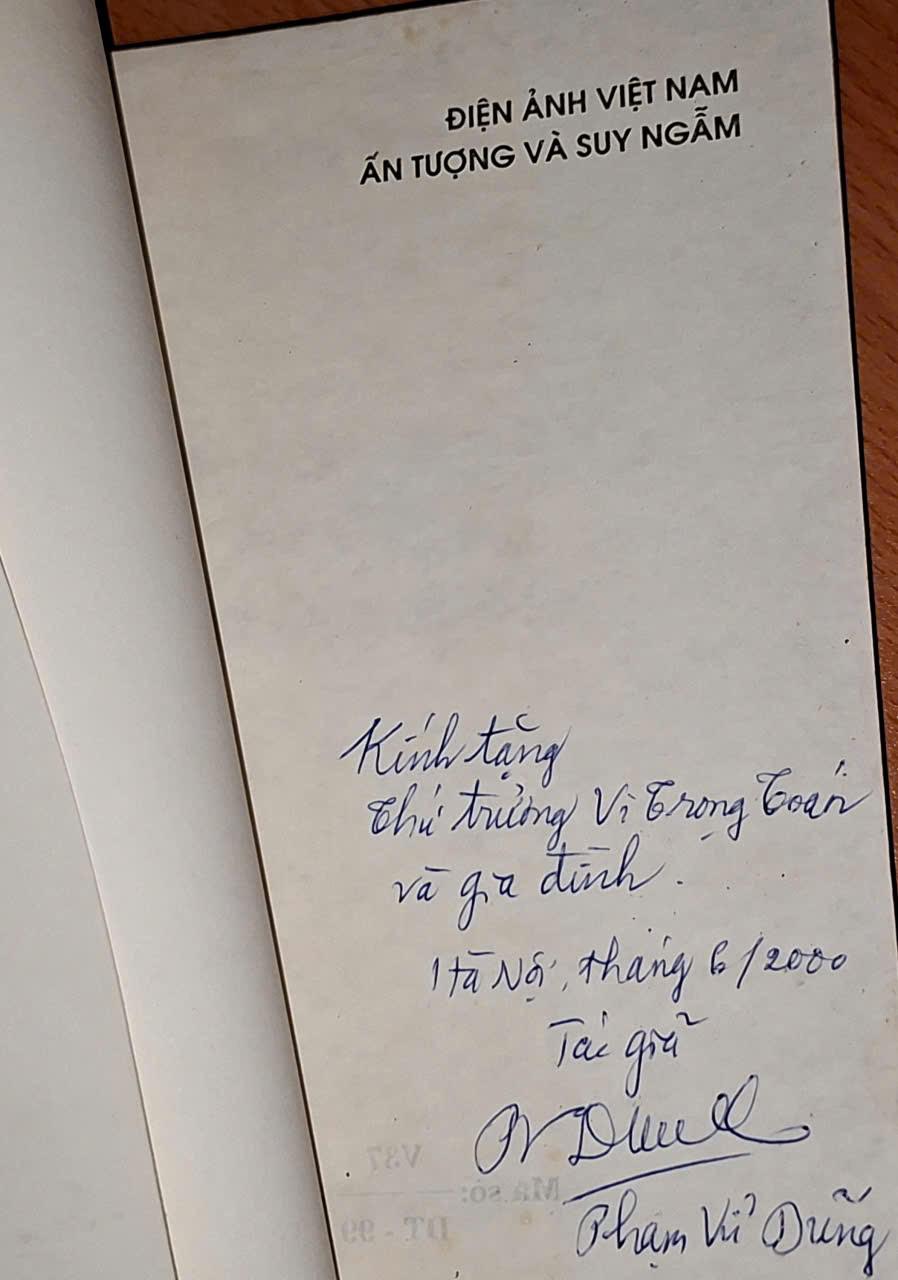 ĐIỆN ẢNH VIỆT NAM
ẤN TƯỢNG VÀ SUY NGẪM
Kính tặng
Thứ trưởng Vi Trọng Toán
và gia đình.
Hà Nội, tháng 6/2000
Tác giả
Phạm Vũ Dũng
V37
Mã số:
DT - 99